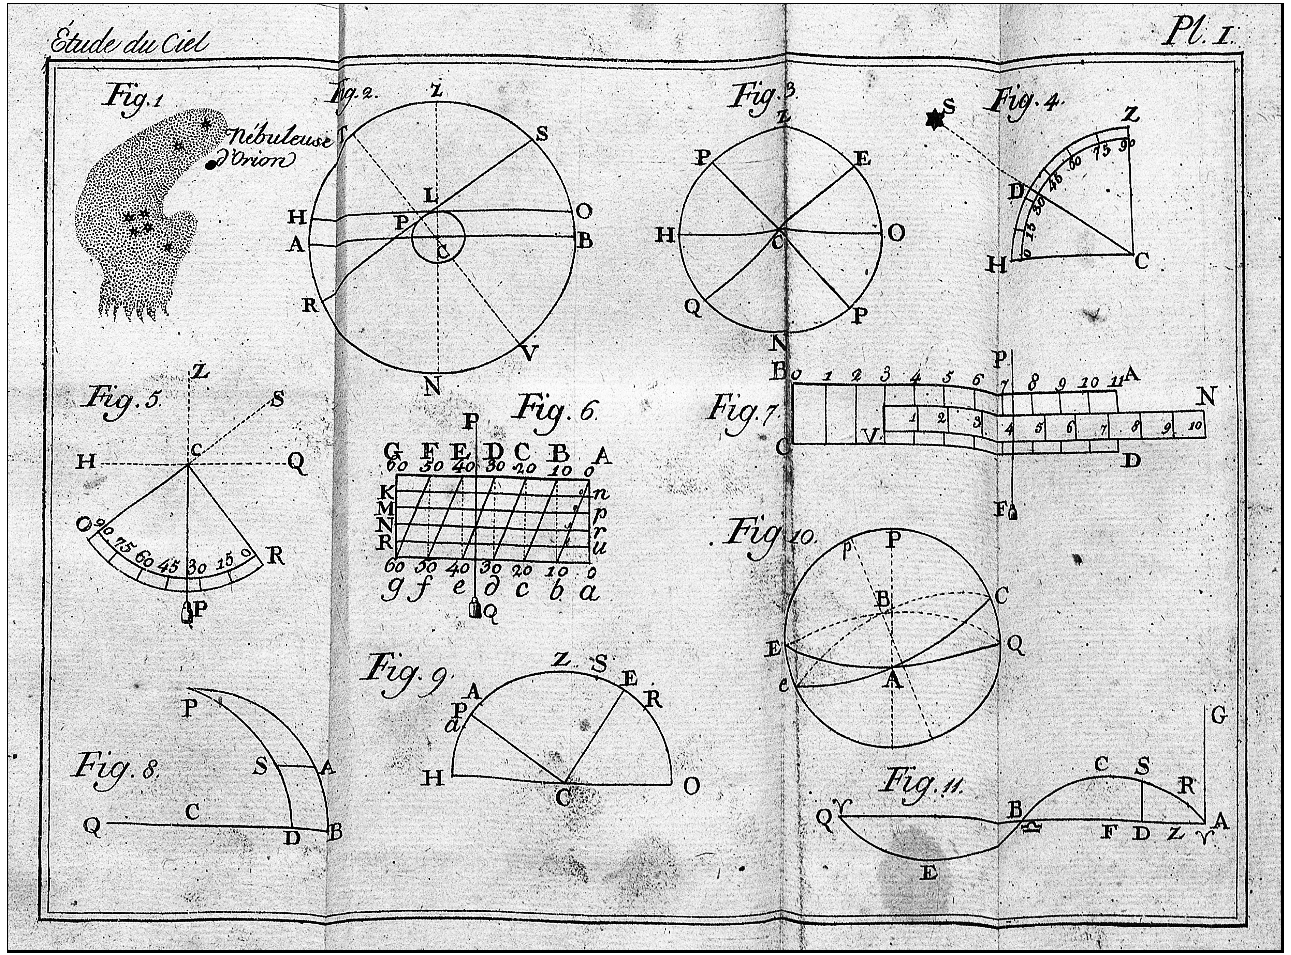 Étude du Ciel
Pl. I.
Fig. 1
Nébuleuse
d'Orion
Fig. 2.
Z
T S
L
H P O
A C B
R
V
N
Fig. 3
Z
P E
H C O
Q P
N
Fig. 4.
S
Z
D
H C
0 15 30 45 60 75 90
Fig. 5.
Z
S
C
H Q
O R
90 75 60 45 30 15 0
P
Fig. 6
P
G F E D C B A
60 50 40 30 20 10 0
K n
M p
N r
R u
60 50 40 30 20 10 0
g f e d c b a
Q
Fig. 7
P
B 0 1 2 3 4 5 6 7 8 9 10 11 A
N
V. 1 2 3 4 5 6 7 8 9 10
C D
F
Fig. 8.
P
S A
C
Q D B
Fig. 9.
Z S
A E
P R
a
H C O
Fig. 10.
p P
B C
E Q
e A
Fig. 11.
G
C S
R
♈ B
Q P F D Z A
♈
E